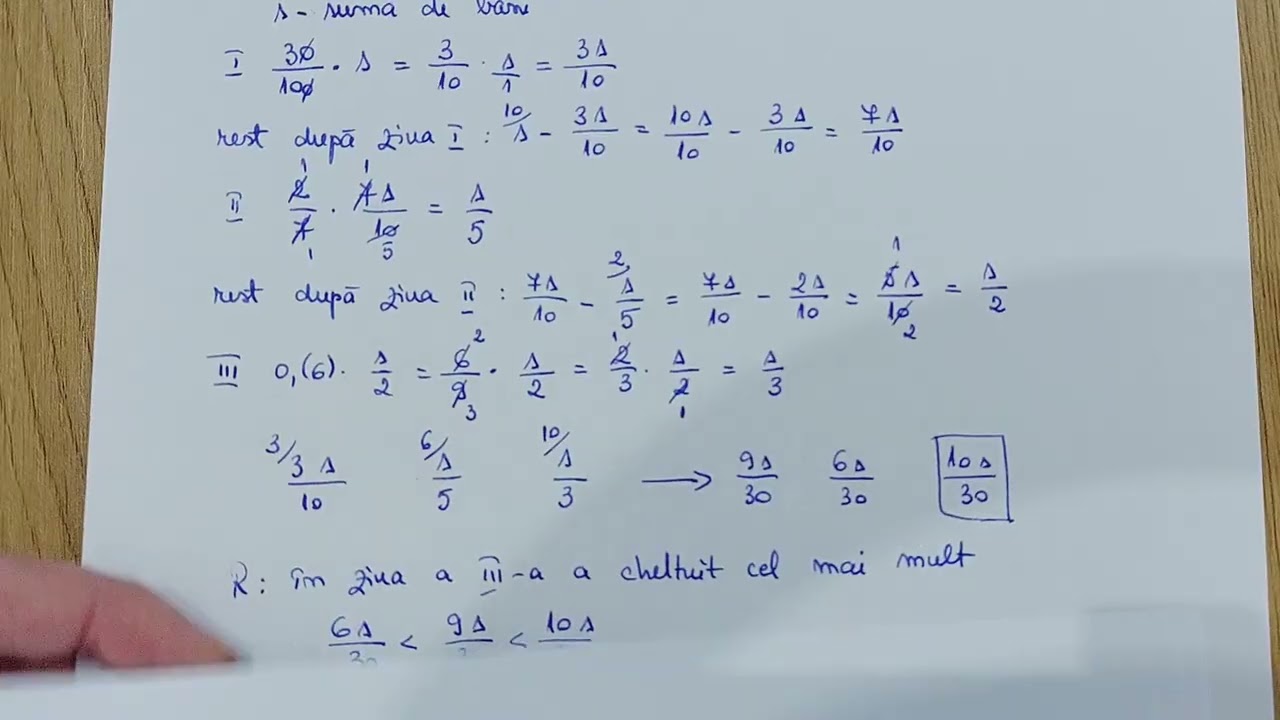 s - suma de bani
I 30/100 · s = 3/10 · s/1 = 3s/10
rest după ziua I : 10/ s - 3s/10 = 10s/10 - 3s/10 = 7s/10
II 2/7 · 7s/10 = s/5 1 1 1 5
rest după ziua II : 7s/10 - 2/ s/5 = 7s/10 - 2s/10 = 5s/10 = s/2 1 2
III 0,(6) · s/2 = 6/9 · s/2 = 2/3 · s/2 = s/3 2 3 1 1
3/ 3s/10 6/ s/5 10/ s/3 → 9s/30 6s/30 10s/30
R: în ziua a III-a a cheltuit cel mai mult
6s/30 < 9s < 10s